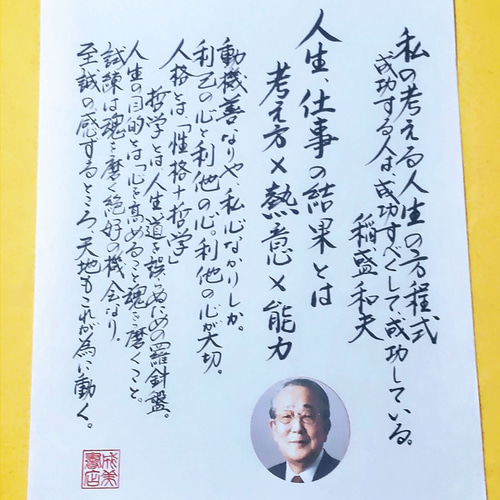 私の考える人生の方程式
成功する人は、成功すべくして、成功している。
稲盛和夫
人生、仕事の結果とは
考え方×熱意×能力
動機善なりや、私心なかりしか。
利己の心と利他の心。利他の心が大切。
人格とは、「性格+哲学」
哲学とは人生道を誤らぬための羅針盤。
人生の目的とは「心を高めること、魂を磨くこと。
試練は魂を磨く絶好の機会なり。
至誠の感ずるところ、天地もこれが為に動く。
成美
書店